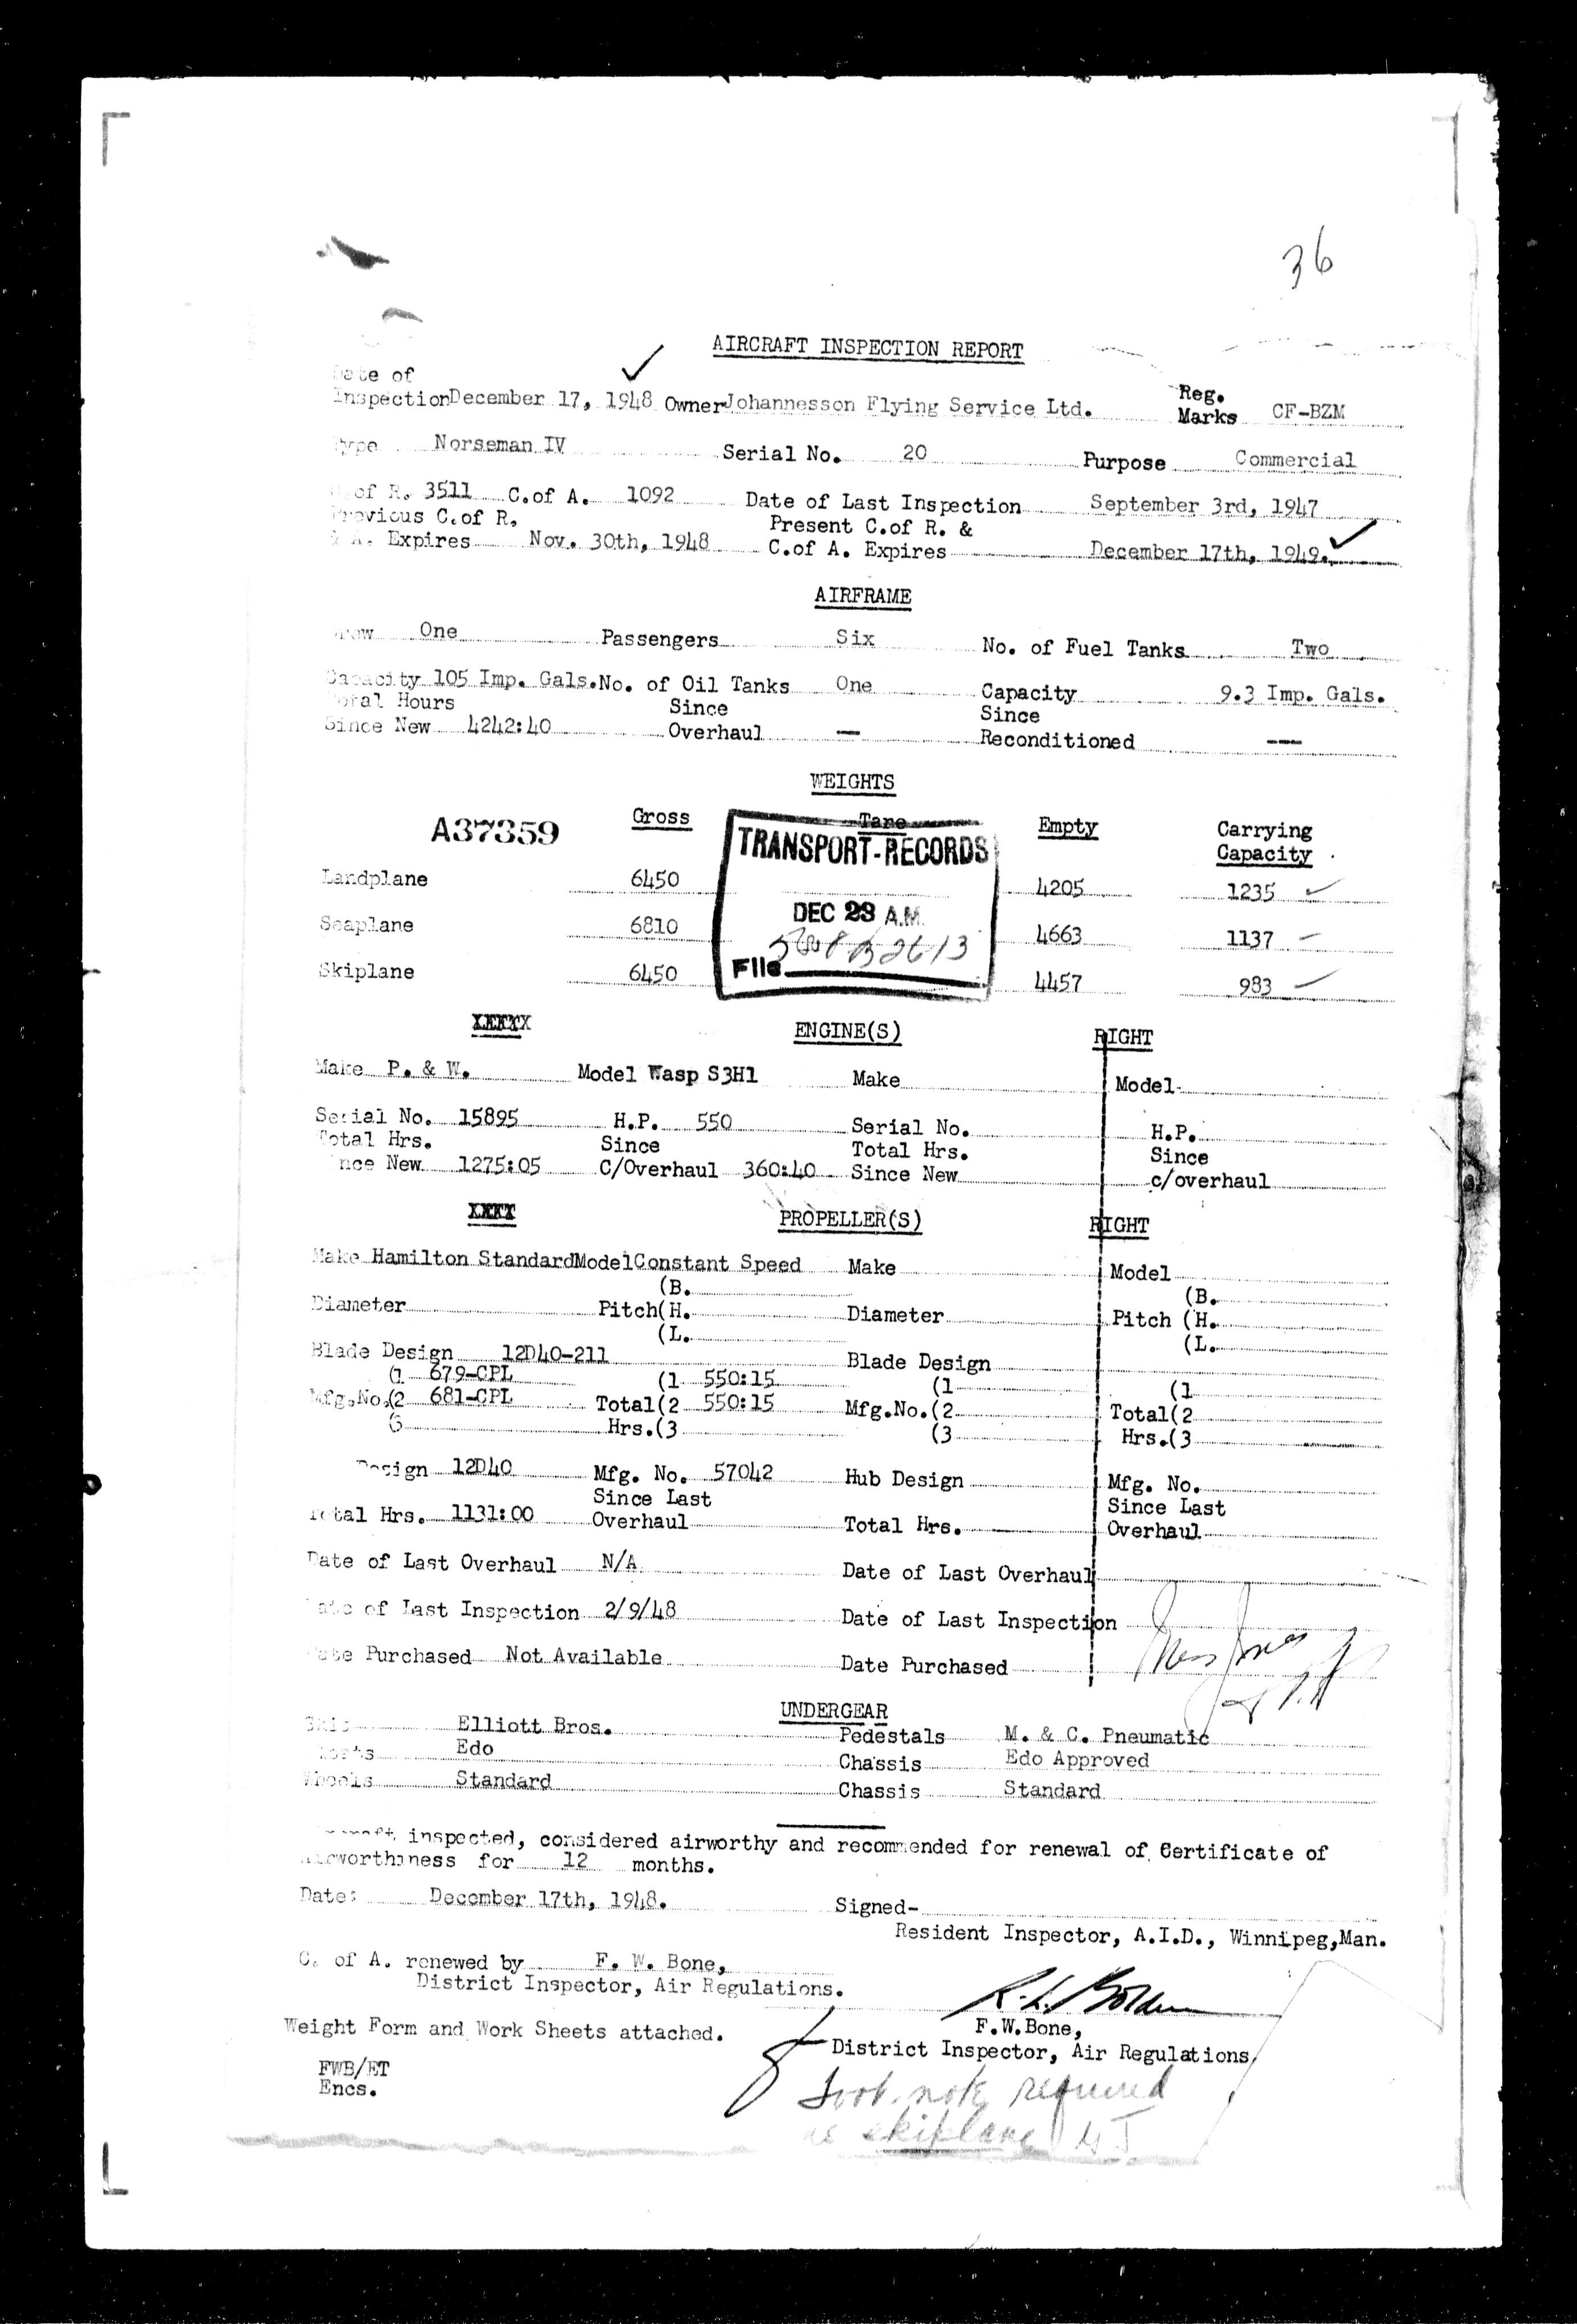 36
AIRCRAFT INSPECTION REPORT
Date of
Inspection December 17, 1948 Owner Johannesson Flying Service Ltd. Reg. Marks CF-BZM
Type Norseman IV Serial No. 20 Purpose Commercial
C of R. 3511 C. of A. 1092 Date of Last Inspection September 3rd, 1947
Previous C. of R. Present C. of R. &
& A. Expires Nov. 30th, 1948 C. of A. Expires December 17th, 1949.
AIRFRAME
Crew One Passengers Six No. of Fuel Tanks Two
Capacity 105 Imp. Gals. No. of Oil Tanks One Capacity 9.3 Imp. Gals.
Total Hours Since Since
Since New 4242:40 Overhaul — Reconditioned —
WEIGHTS
A37359 Gross Tare Empty Carrying Capacity
TRANSPORT-RECORDS
Landplane 6450 4205 1235
DEC 23 A.M.
Seaplane 6810 4663 1137
File
Skiplane 6450 4457 983
XXXXX ENGINE(S) RIGHT
Make P. & W. Model Wasp S3H1 Make Model
Serial No. 15895 H.P. 550 Serial No. H.P.
Total Hrs. Since Total Hrs. Since
Since New 1275:05 C/Overhaul 360:40 Since New c/overhaul
XXXX PROPELLER(S) RIGHT
Make Hamilton Standard Model Constant Speed Make Model
(B. (B.
Diameter Pitch(H. Diameter Pitch (H.
(L. (L.
Blade Design 12D40-211 Blade Design
(1 679-CPL (1 550:15 (1 (1
Mfg.No.(2 681-CPL Total(2 550:15 Mfg.No.(2 Total(2
(3 Hrs.(3 (3 Hrs.(3
Design 12D40 Mfg. No. 57042 Hub Design Mfg. No.
Since Last Since Last
Total Hrs. 1131:00 Overhaul Total Hrs. Overhaul
Date of Last Overhaul N/A Date of Last Overhaul
Date of Last Inspection 2/9/48 Date of Last Inspection
Date Purchased Not Available Date Purchased
UNDERGEAR
Skis Elliott Bros. Pedestals M. & C. Pneumatic
Floats Edo Chassis Edo Approved
Wheels Standard Chassis Standard
Aircraft inspected, considered airworthy and recommended for renewal of Certificate of
Airworthiness for 12 months.
Date: December 17th, 1948. Signed-
Resident Inspector, A.I.D., Winnipeg, Man.
C. of A. renewed by F. W. Bone,
District Inspector, Air Regulations.
F.W.Bone,
Weight Form and Work Sheets attached.
District Inspector, Air Regulations
FWB/ET
Encs.
foot note required
as skiplane